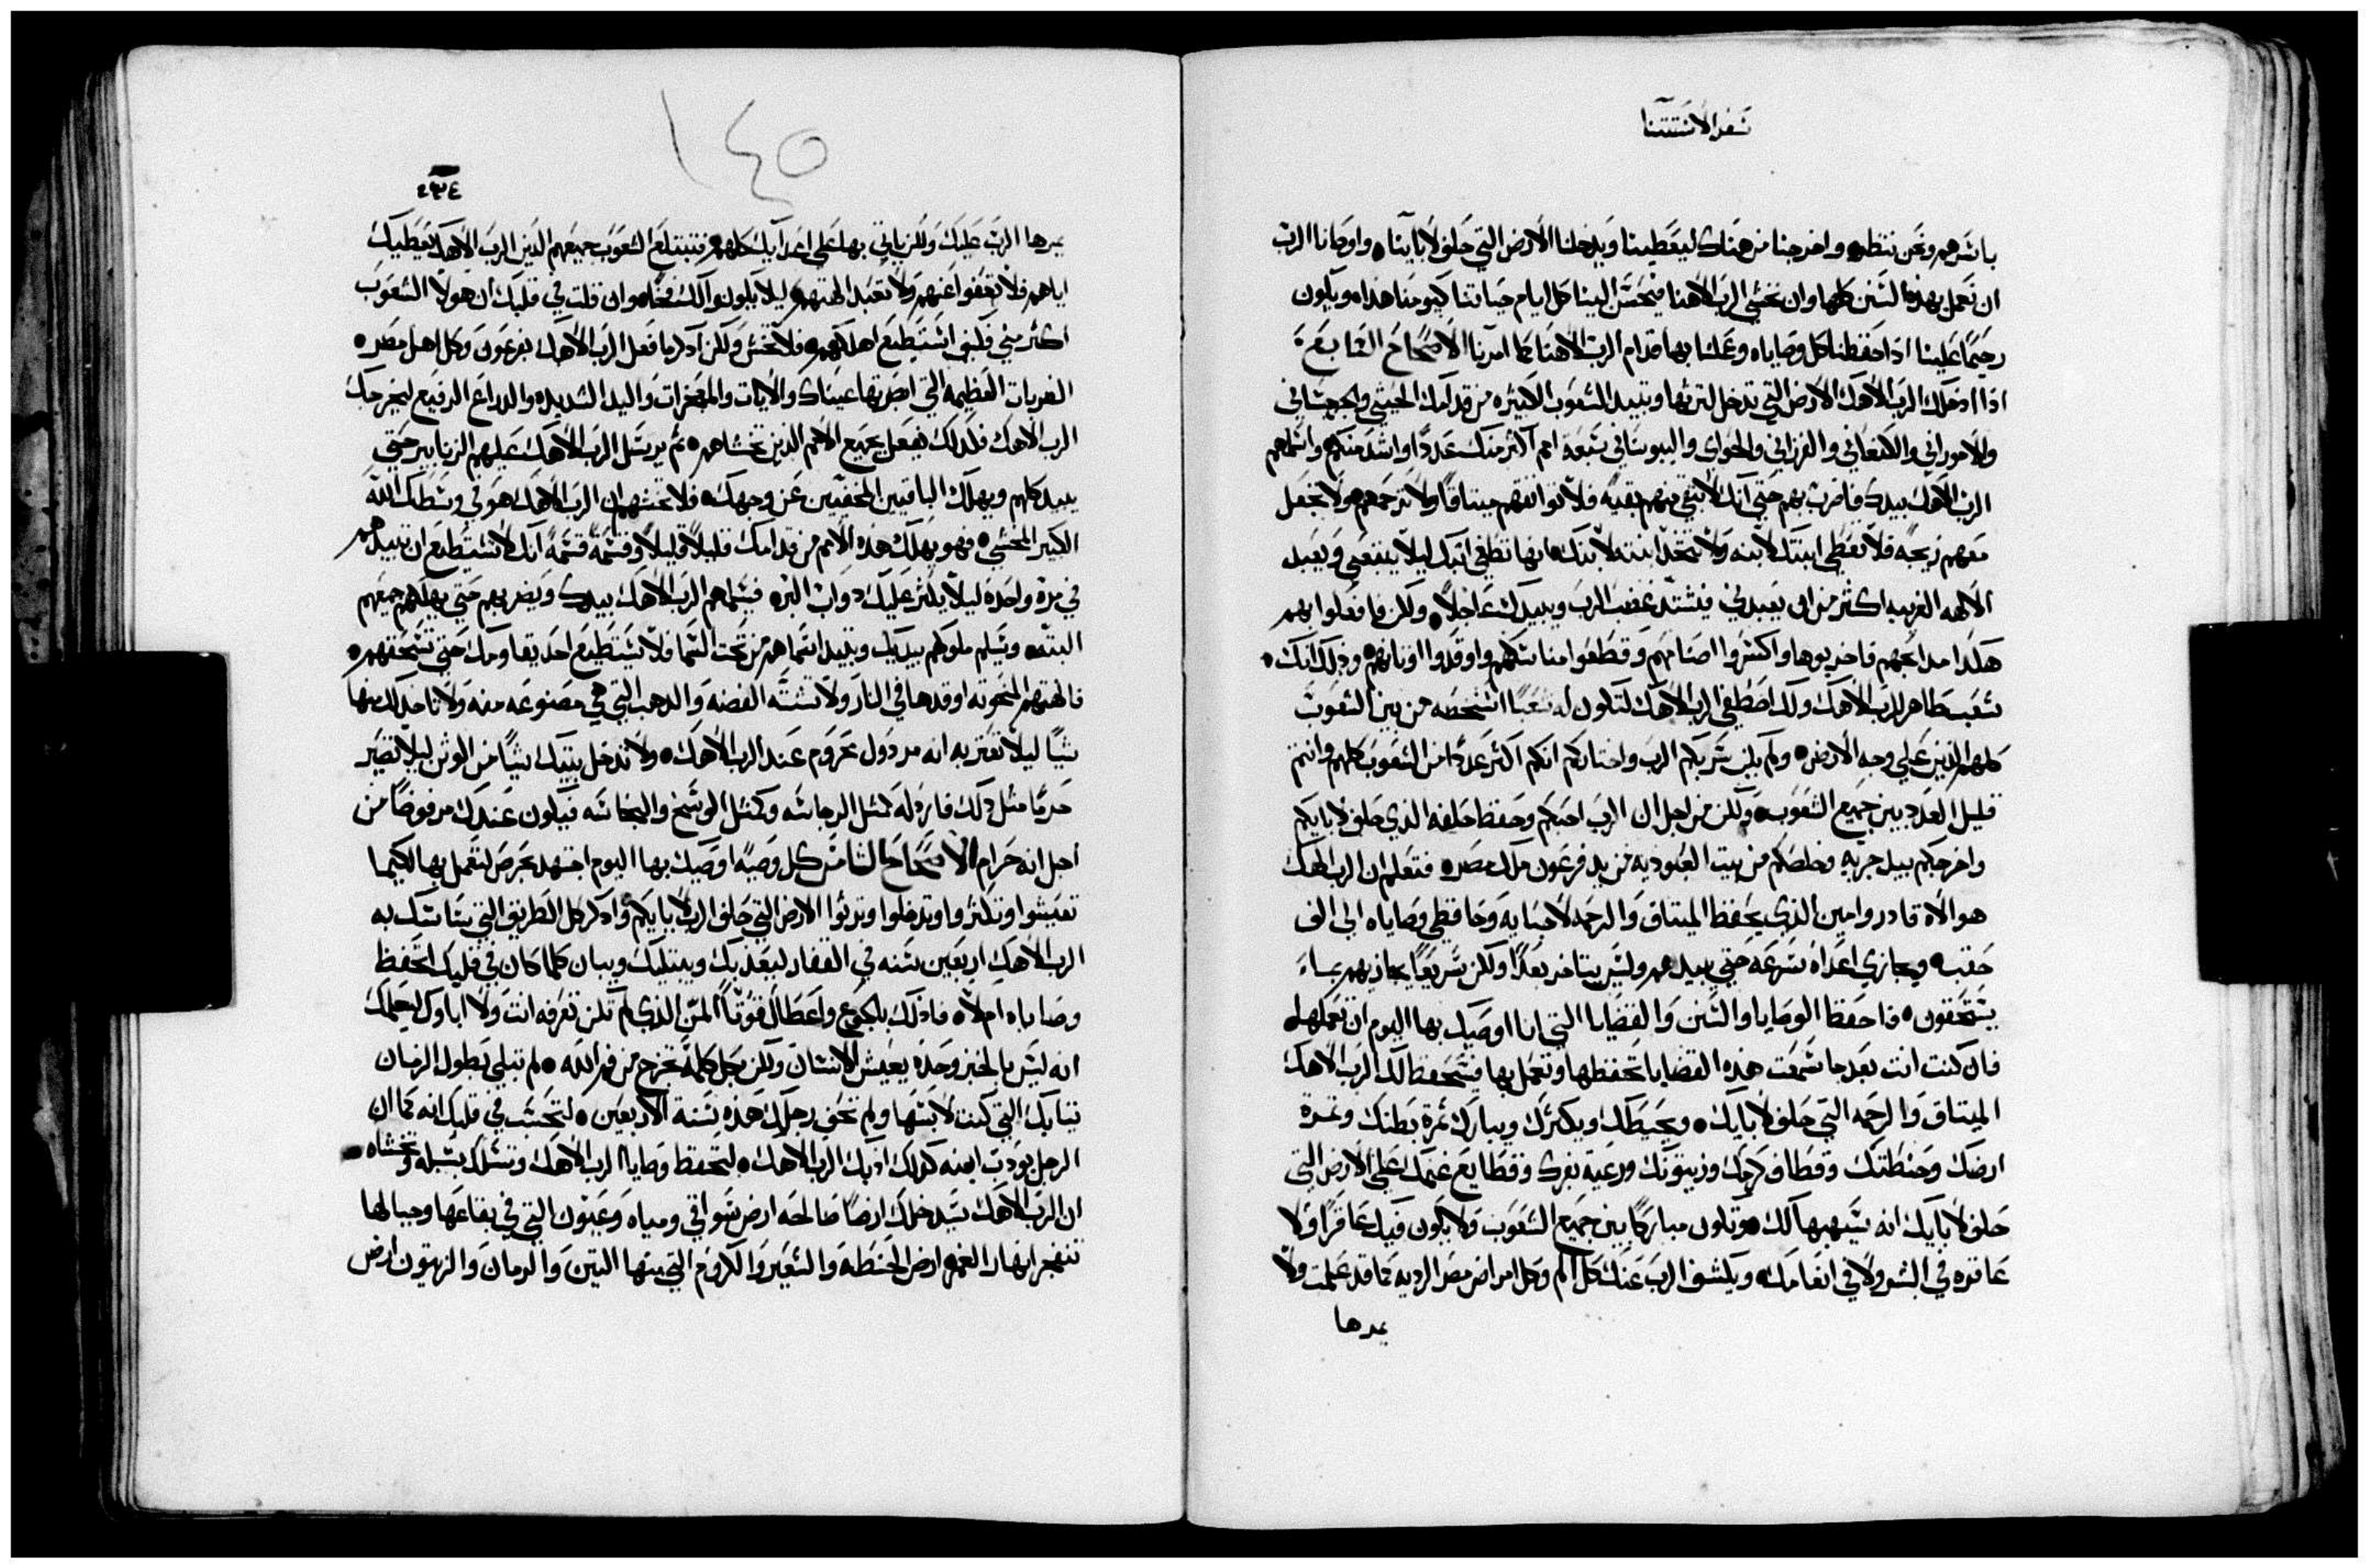 سفر الاستتنا
باسرهم ونحن ننتظره واخرجنا من هناك ليعطينا ويدخلنا الارض التي حلف لابآينا، واوصانا الرب
ان نعمل بهذه السنن كلها وان نخشي الرب الاهنا فيحسن الينا كل ايام حياتنا كيومنا هذا، ويكون
رحيمًا علينا اذا حفظنا كل وصاياه وعملنا بها قدام الرب الاهنا كما امرنا الاصحاح السابع:
اذا ادخلك الرب الاهك الارض التي تدخل لترثها وتبيد الشعوب الكثيره من قدامك الحيثي والجرجساني
والاموراني والكنعاني والفرزاني والحواي واليبوساني سبعة امم اكثر منك عددًا واشد منكم واسلمهم
الرب الاهك بيدك فاضرب بهم حتي انك لا تبقي منهم بقيه فلا تواثقهم ميثاقًا ولا ترحمهم، ولا تجعل
معهم زيجه فلا تعطي ابنتك لابنه ولا تتخد ابنته لابنك، انها تطغي ابنك ليلا يتبعني ويعبد
الالهه الغريبه اكثر من ان يعبدني فيشتد غضب الرب ويبيدك عاجلاً، ولكن فافعلوا بهم
هكدا مدابحهم فاخربوها واكسروا اصنامهم وقطعوا مناسكهم واوقدوا اوثانهم، ودلك انك
شعب طاهر للرب الاهك ولك اصطفي الرب الاهك لتكون له شعبًا اشخصه من بين الشعوب
كلهم الدين علي وجه الارض، ولم يكن سر بكم الرب واختاركم انكم اكثر عددًا من الشعوب كلهم وانتم
قليل العدد بين جميع الشعوب، ولكن من اجل ان الرب احبكم وحفظ حلفه الدي حلف لابايكم
واخرجكم بيد حريه وخلصكم من بيت العبوديه من يد فرعون ملك مصر، فتعلم ان الرب الهك
هو الاه قادر وامين الدي يحفظ الميثاق والرحمه لاحبايه وحافظي وصاياه الي الف
حقبه ويجازي اعداه بسرعه حتي يبيدهم وليس يتاخر بعدًا ولكن سريعًا يجازيهم بماء
يستحقون، فاحفظ الوصايا والسنن والقضايا التي انا اوصيك بها اليوم ان تعملها،
فان كنت انت بعد ما سمعت هده القضايا تحفظها وتعمل بها فسيحفظ لك الرب الاهك
الميثاق والرحمه التي حلف لابايك، ويحبك ويكثرك ويبارك ثمرة بطنك وثمرة
ارضك وحنطتك وقطاف كرمك وزيتونك ورعية بقرك وقطايع غنمك علي الارض التي
حلف لابايك انه سيهبها لك، وتكون مباركًا بين جميع الشعوب ولا يكون فيك عاقرًا ولا
عاقره في البشر ولا في انعامك، ويكشف الرب عنك كل الم وكل امراض مصر الرديه مما قد علمت ولا
يمرها
١٤٥
٤٣٤
يمرها الرب عليك ولكن ياتي بها علي اعدايك كلهم، فتبتلع الشعوب جميعهم الدين الرب الاهك يعطيك
اياهم فلا تعفوا عنهم ولا تعبد الهتهم، ليلا يكونوا لك فخًا، وان قلت في قلبك ان هولا الشعوب
اكثر مني فكيف استطيع اهلكهم، فلا تخش ولكن ادكر ما فعل الرب الاهك بفرعون وكل اهل مصر،
الضربات العظيمه التي ابصرتها عيناك والايات والمعجزات واليد الشديده والدراع الرفيع ليخرجك
الرب الاهك فكدلك يفعل بجميع الامم الدين تخشاهم، ثم يرسل الرب الاهك عليهم الزنابير حتي
يبيد كلهم ويهلك الباقيين المختفيين عن وجهك، فلا تخشهم ان الرب الاهك هو في وسطك الله
الكبير المخشي، فهو يهلك هده الامم من قدامك قليلاً قليلاً وقسمةً قسمةً انك لا تستطيع ان تبيدهم
في مرة واحده ليلا يكثر عليك دواب البر، فيسلمهم الرب الاهك بيدك ويضربهم حتي يهلكهم جميعهم
البته، ويسلم ملوكهم بيديك وتبيد اسماهم من تحت السما فلا يستطيع احد يقاومك حتي تسحقهم،
فالهتهم المنحوته اوقدها في النار ولا تشته الفضه والدهب التي هي مصنوعه منه ولا تاخد لك منها
شيًا ليلا تعتر به انه مردول محروم عند الرب الاهك، ولا تدخل بيتك شيًا من الوثن ليلا تصير
حرمًا مثل دلك فاردله كمثل الرجاسه وكمثل الوسخ والنجاسه فيكون عندك مرفوضًا من
اجل انه حرام الاصحاح الثامن كل وصيه اوصيك بها اليوم اجتهد بحرص لتعمل بها لكيما
تعيشوا وتكثروا وتدخلوا وترثوا الارض التي حلف الرب لابايكم، وادكر كل الطريق التي ساسك به
الرب الاهك اربعين سنه في القفار ليعدبك ويبتليك ويبان كلما كان في قلبك اتحفظ
وصاياه ام لا، فادلك بالجوع واعطاك قوتًا المن الدي لم تكن تعرفه انت ولا اباوك ليعلمك
انه ليس بالخبز وحده يعيش الانسان ولكن بكل كلمة تخرج من فم الله، لم تبلي بطول الزمان
تيابك التي كنت لابسها ولم تحف رجلك هده سنة الاربعين، لتحسب في قلبك انه كما ان
الرجل يودب ابنه كدلك ادبك الرب الاهك، لتحفظ وصايا الرب الاهك وتسلك بسبله وتخشاه،
ان الرب الاهك سيدخلك ارضًا صالحه ارض سواقي ومياه وعيون التي في بقاعها وجبالها
تنفجر انهار الغمر، ارض الحنطه والشعير والكروم التي منها التين والرمان والزيتون ارض